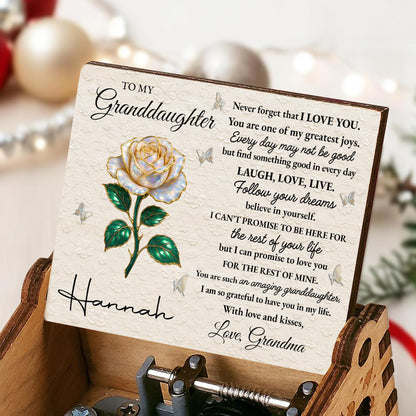 TO MY
Granddaughter
Hannah
Never forget that I LOVE YOU.
You are one of my greatest joys.
Every day may not be good
but find something good in every day
LAUGH, LOVE, LIVE.
Follow your dreams
believe in yourself.
I CAN'T PROMISE TO BE HERE FOR
the rest of your life
but I can promise to love you
FOR THE REST OF MINE.
You are such an amazing granddaughter,
I am so grateful to have you in my life.
With love and kisses,
Love, Grandma